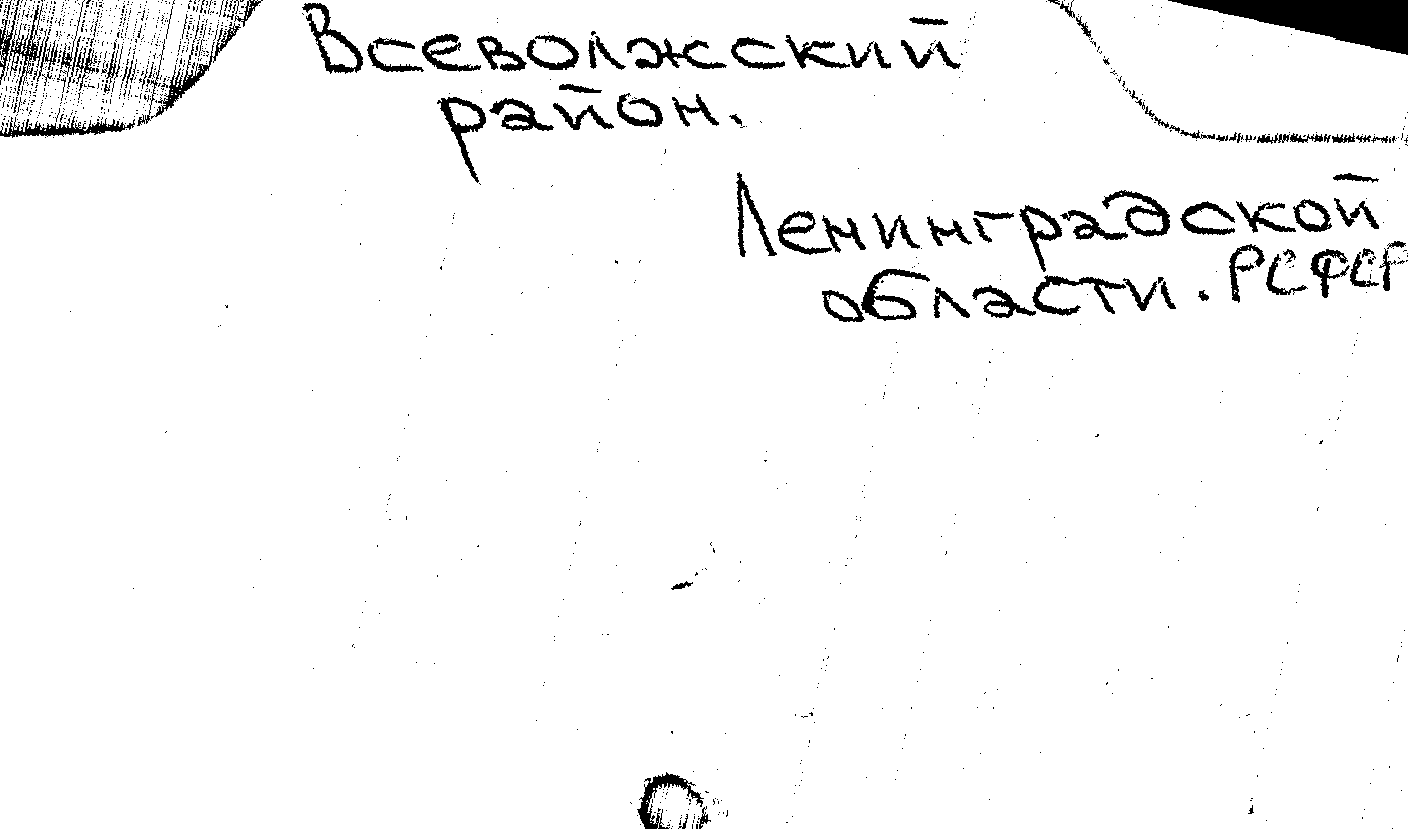 Всеволжский
район.
Ленинградской
области. РСФСР